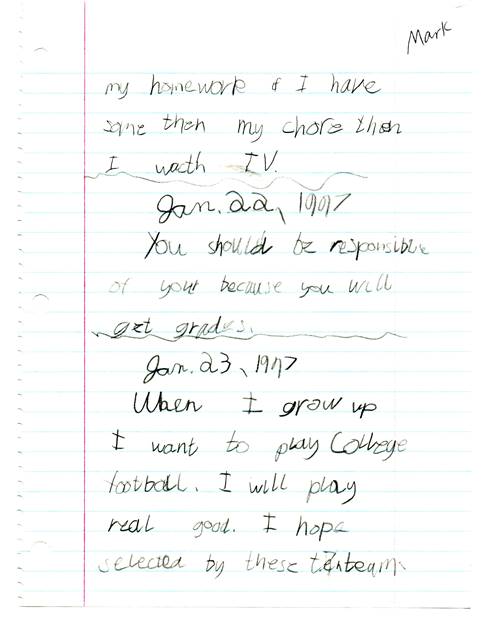 Mark
my homework if I have
some then my chore then
I wacth TV.
Jan. 22, 1997
You should be responsible
of your because you will
get grades.
Jan. 23, 1997
When I grow up
I want to play College
football. I will play
real good. I hope
selected by these team